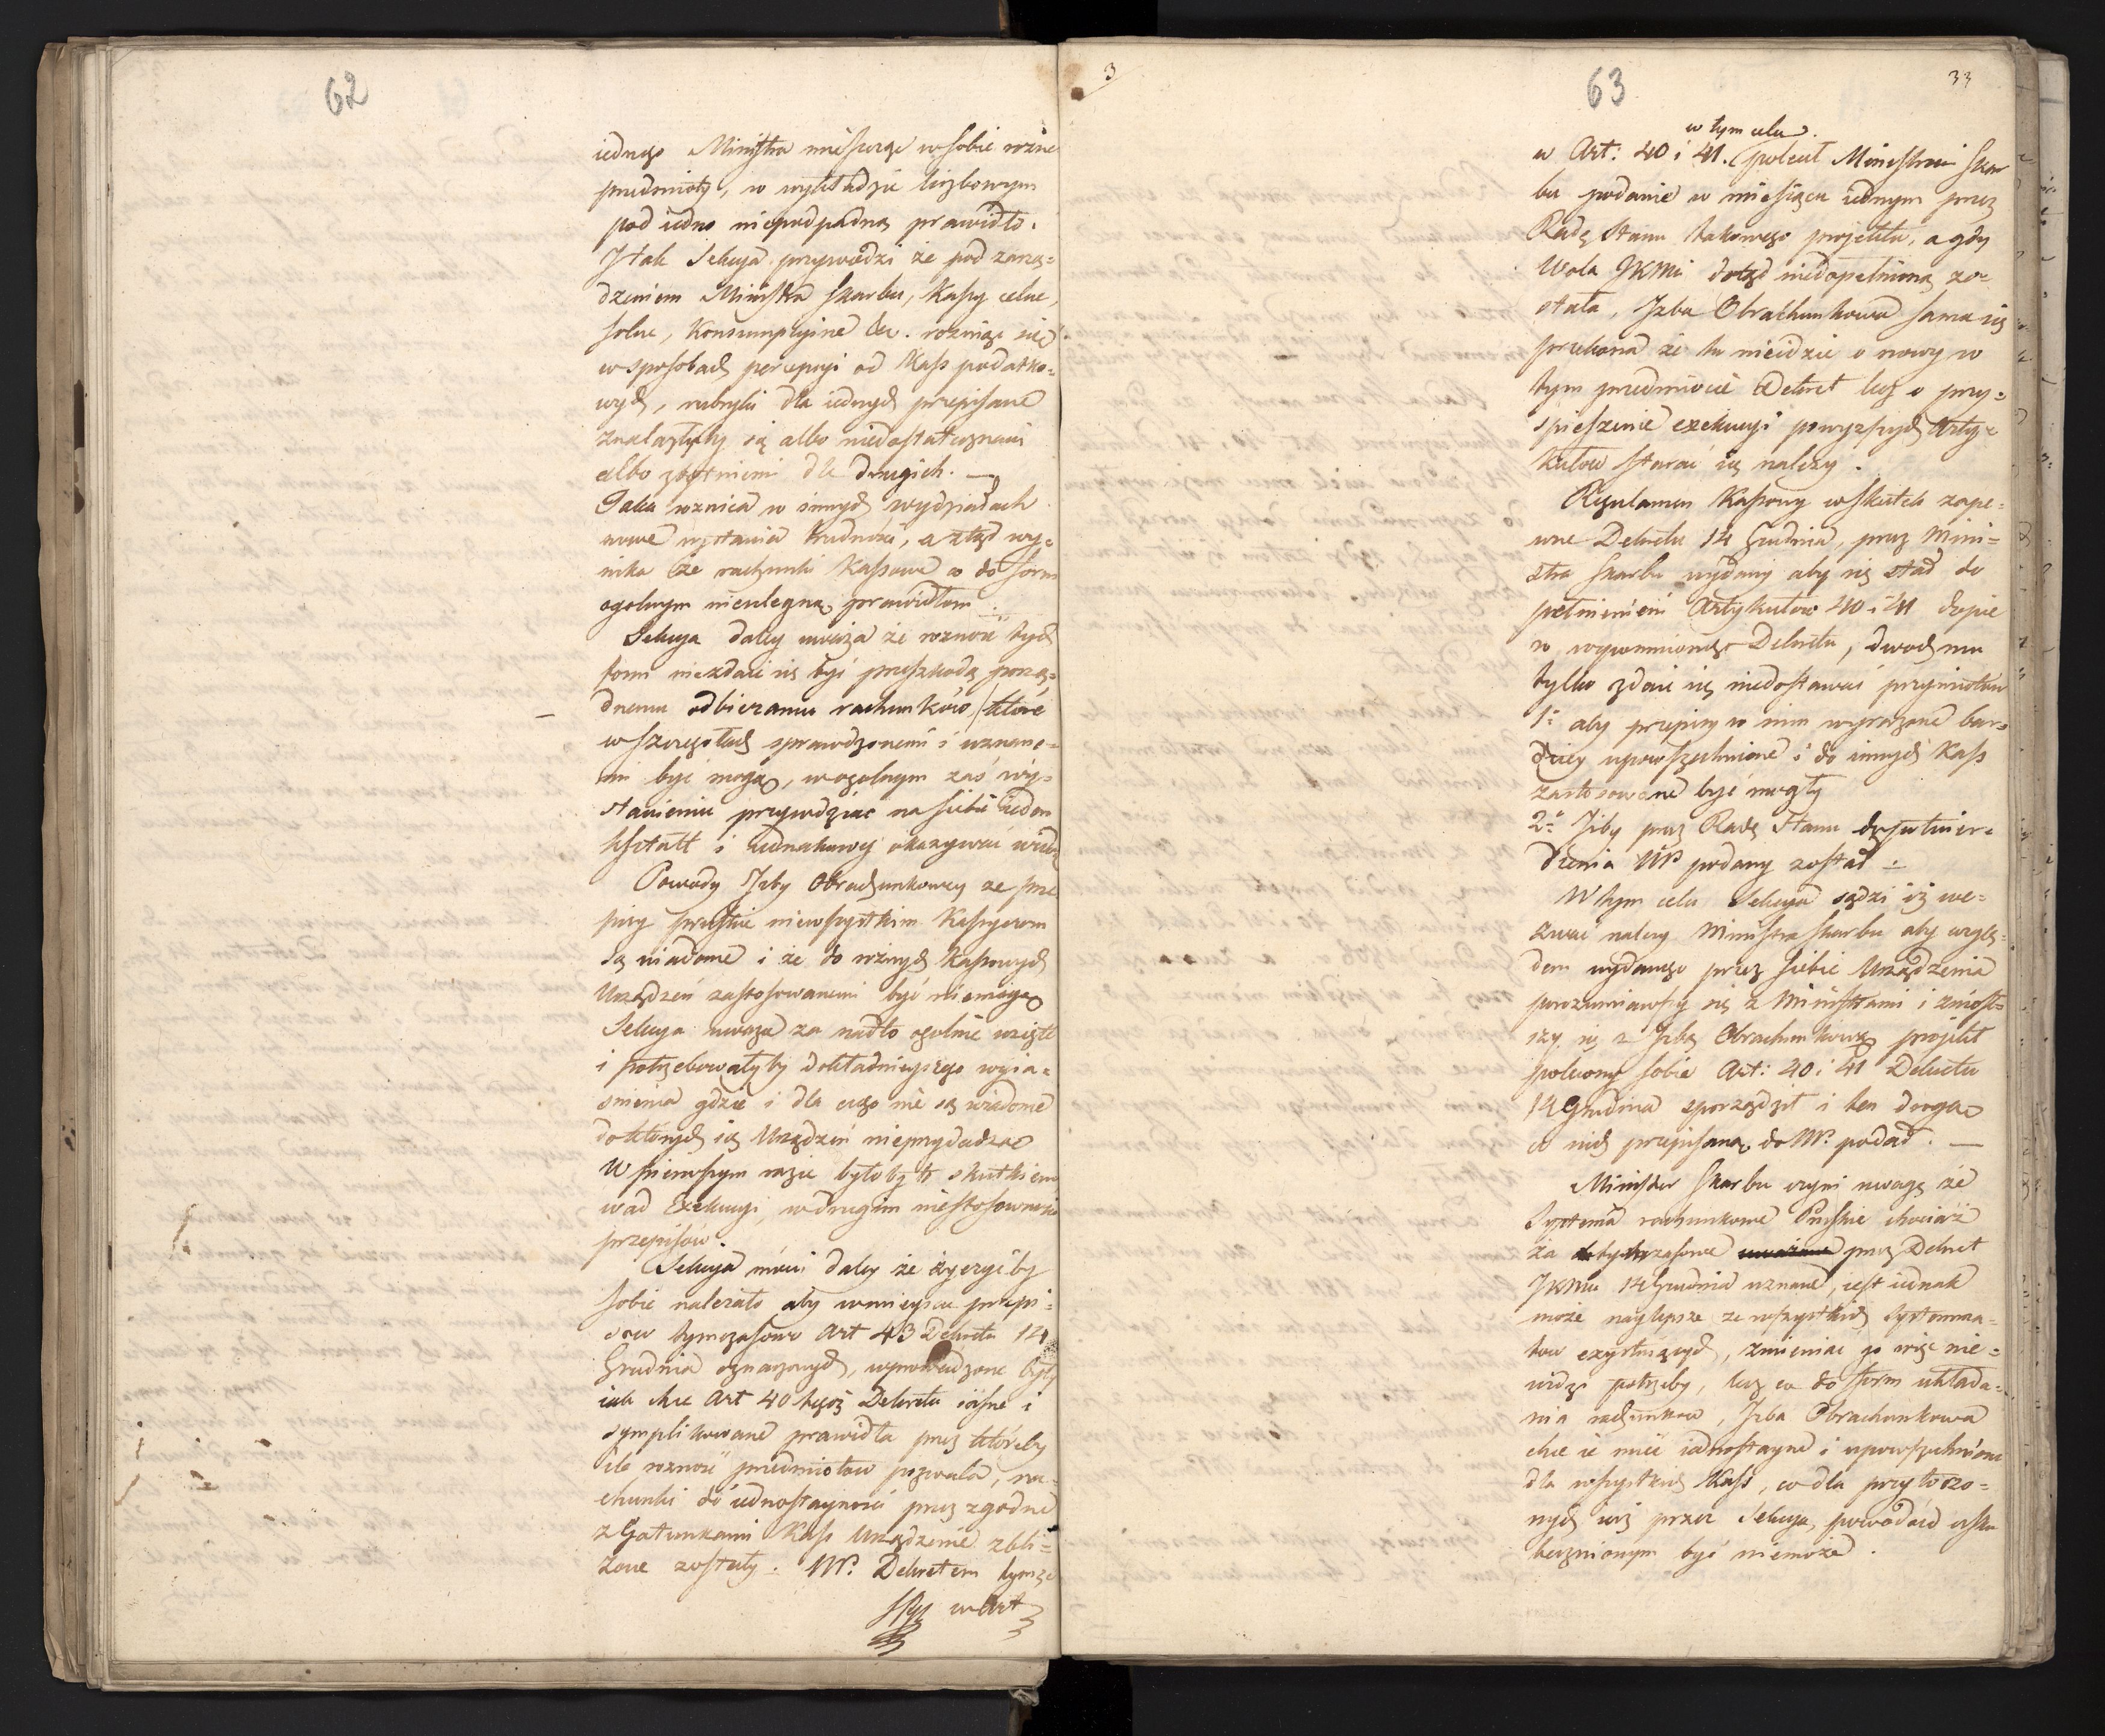 62
iednego Ministra mieszcząc w sobie rożne
przedmioty, w wykładzie liczbowym
pod iedno niepodpadną prawidło.
J tak Sekcya przywodzi że pod zarzą=
dzeniem Ministra Skarbu, Kassy celne,
solne, Konsumpcyine &c. rożniąc się
w sposobach percepcyi od Kass podatko=
wych, rubryki dla iednych przepisane
znalazłyby się albo niedostatecznemi
albo zbytniemi dla drugich. —
Taka rożnica w innych wydziałach
nowe wystawia trudności, a ztąd wy=
nika że rachunki Kassowe co do form
ogolnym nieulegną prawidłom.
Sekcya daley uważa że rożność tych
form niezdaie się być przeszkodą porzą=
dnemu odbieraniu rachunków, które
w szczegołach sprawdzonemi i uznane=
mi być mogą, w ogolnym zaś wy=
stawieniu przywdziać na siebie ieden
kształt i iednakowy okazywać widok
Powody Jzby Obrachunkowey ze prze
pisy pruskie niewszystkim Kassyerom
są wiadome i że do rożnych Kassowych
Urządzeń zastosowanemi być niemogą
Sekcya uważa za nadto ogolnie wzięte
i potrzebowałyby dokładnieyszego wyia=
snienia gdzie i dla czego nie są wiadome
do których się Urządzeń nieprzydadzą
W pierwszym razie byłoby to skutkiem
wad Exekucyi, w drugim niestosowności
przepisów.
Sekcya mówi daley że życzyćby
sobie należało aby w mieysce przepi=
sow tymczasowo Art 43 Dekretu 14
Grudnia oznaczonych, wprowadzone były
iak chce Art 40 tegoż Dekretu iasne i
symplikowane prawidła przez któreby
ile rożność przedmiotow pozwala, ra=
chunki do iednostayności przez zgodne
z Gatunkami Kass Urządzenie zbli=
żone zostały. NP. Dekretem tymże
w Art
3
63
33
w tym celu
w Art: 40 i 41. polecił Ministrowi Skar
bu podanie w miesiącu iednym przez
Radę Stanu takowego projektu, a gdy
Wola JKMci dotąd niedopełnioną zo=
stała, Jzba Obrachunkowa sama się
przekona że tu nieidzie o nowy w
tym przedmiocie Dekret lecz o przy=
spieszenie exekucyi powyższych Arty=
kułow starać się należy.
Regulamen Kassowy wskutek zape=
wne Dekretu 14 Grudnia, przez Mini=
stra Skarbu wydany aby się stał do
pełnieniem Artykułow 40 i 41 dopie
ro wspomnionego Dekretu, dwoch mu
tylko zdaie się niedostawać przymiotów
1o aby przepisy w nim wyrażone bar=
dziey upowszechnione i do innych Kass
zastosowane być mogły
2o Żeby przez Radę Stanu do potwier=
dzenia NP podany został.
W tym celu Sekcya sądzi iż we=
zwać należy Ministra Skarbu aby wzglę=
dem wydanego przez siebie Urządzenia
porozumiawszy się z Ministrami i zniosł=
szy się z Jzbą Obrachunkową projekt
polecony sobie Art: 40 i 41 Dekretu
14 Grudnia sporządził i ten drogą
w nich przepisaną do NP. podał. —
Minister Skarbu czyni uwagę że
Systema rachunkowe Pruskie chociaż
za tymczasowe przez Dekret
JKMci 14 Grudnia uznane, iest iednak
może naylepsze ze wszystkich systemma=
tow exystuiących, zmieniać go więc nie=
widzi potrzeby, lecz co do form układa=
nia rachunkow, Jzba Obrachunkowa
chce ie mieć iednostayne i upowszechnione
dla wszystkich Kass, co dla przytoczo=
nych iuż przez Sekcyą powodów usku
tecznionym być niemoże.